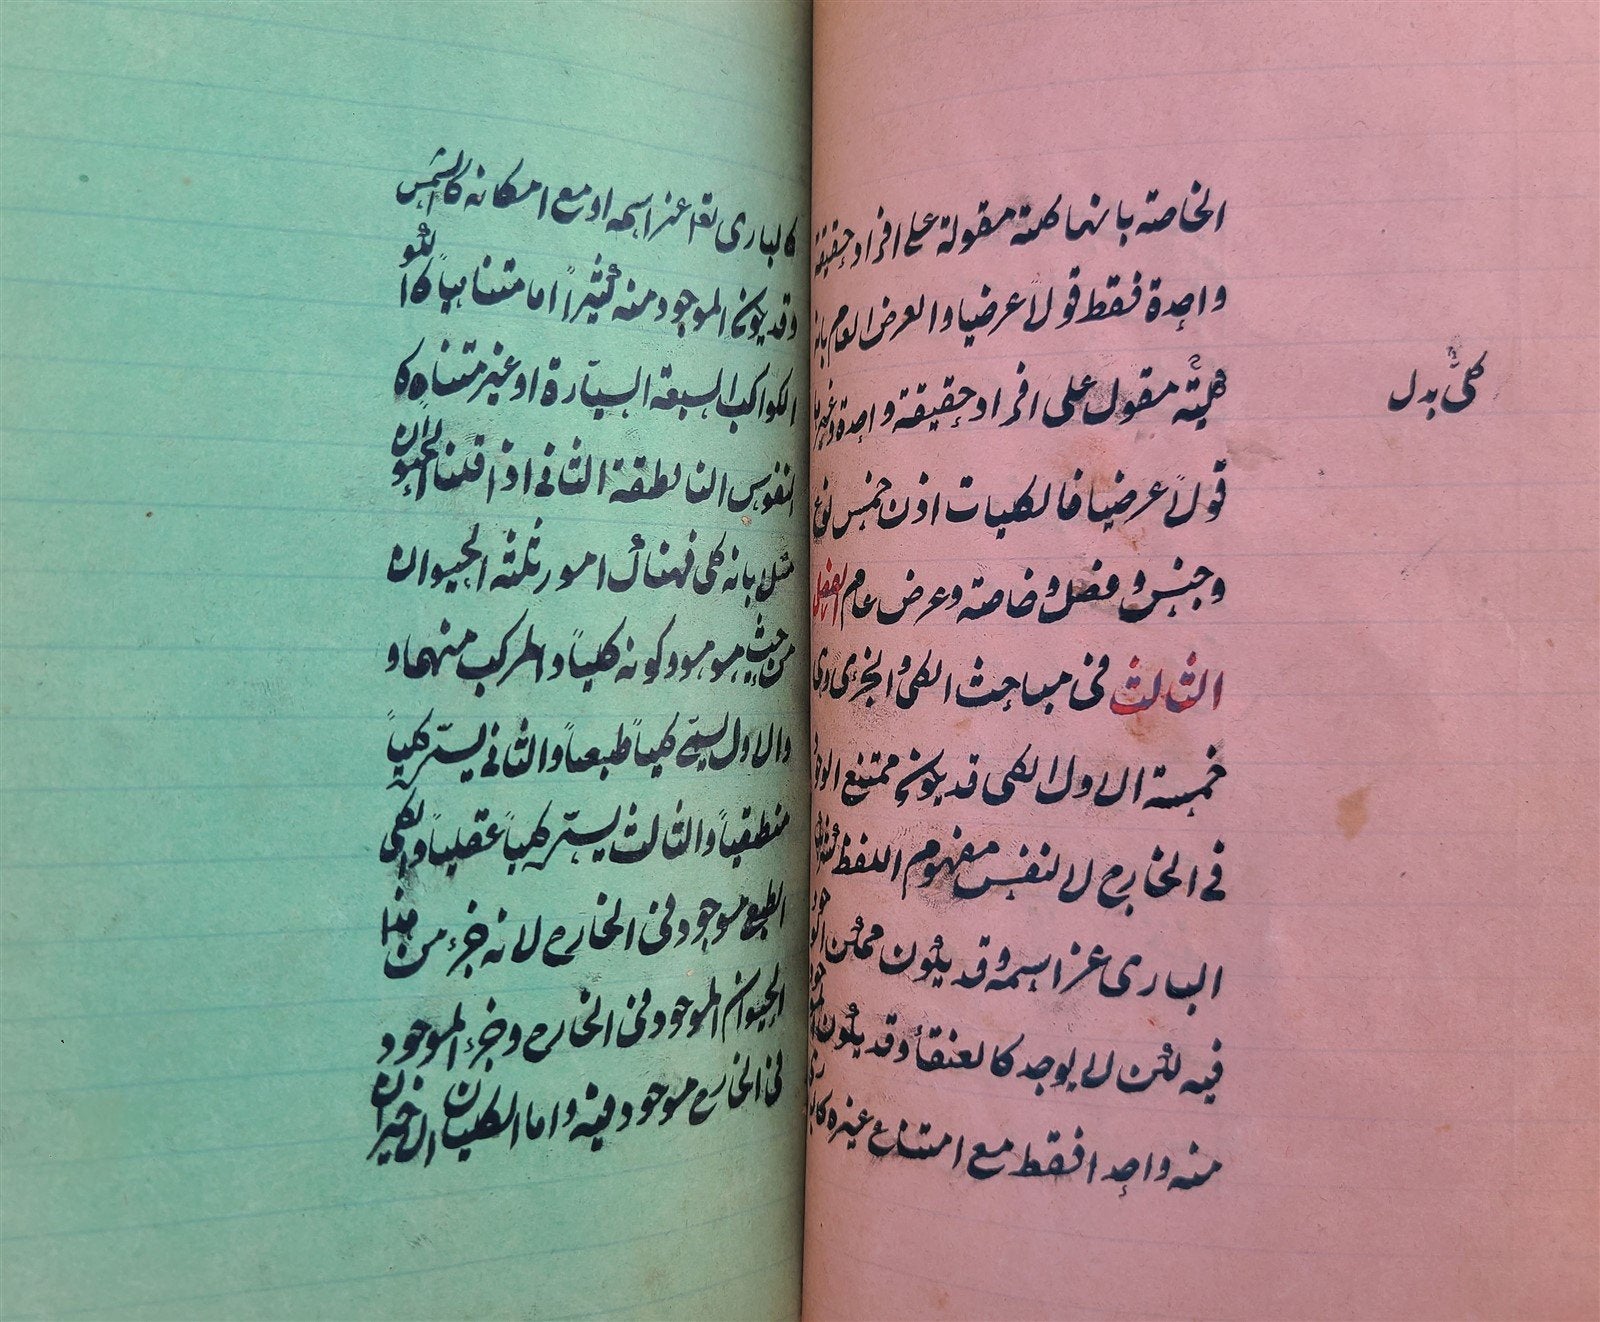 الخاصة بانها كلية مقولة على افراد حقيقة
واحدة فقط قولا عرضيا والعرض العام بانه
كلية مقول على افراد حقيقة واحدة وغيرها
كلىٌّ بدل
قولاً عرضيا فالكليات اذن خمس نوع
وجنس و فصل و خاصة وعرض عام الفصل
الثالث فى مباحث الكلى و الجزئى وهى
خمسة الاول الكلى قد يكون ممتنع الوجود
فى الخارج لا لنفس مفهوم اللفظ كشريك
البارى عز اسمه وقد يكون ممكن الوجود
فيه لكن لا يوجد كالعنقأ وقد يكون الموجود
منه واحدا فقط مع امتناع غيره كالبارى
كالبارى تعا عز اسمه او مع امكانه كالشمس
وقد يكون الموجود منه كثيراً اما متناهياً كا لكو
الكواكب السبعة السيّارة او غير متناه كا
لنفوس الناطقة الثانى اذا قلنا الحيوان
مثلا بانه كلى فهناك امور ثلثة الحيوان
من حيث هو هو و كونه كلياً و المركب منهما و
والاول يسمّى كلياً طبعياً والثانى يسمّى كلياً
منطقياً والثالث يسمّى كلياً عقلياً والكلى
الطبع موجود فى الخارج لانه جزء من هذا
الحيوان الموجود فى الخارج و جزء الموجود
فى الخارج موجود فيه واما الكليان الاخيران